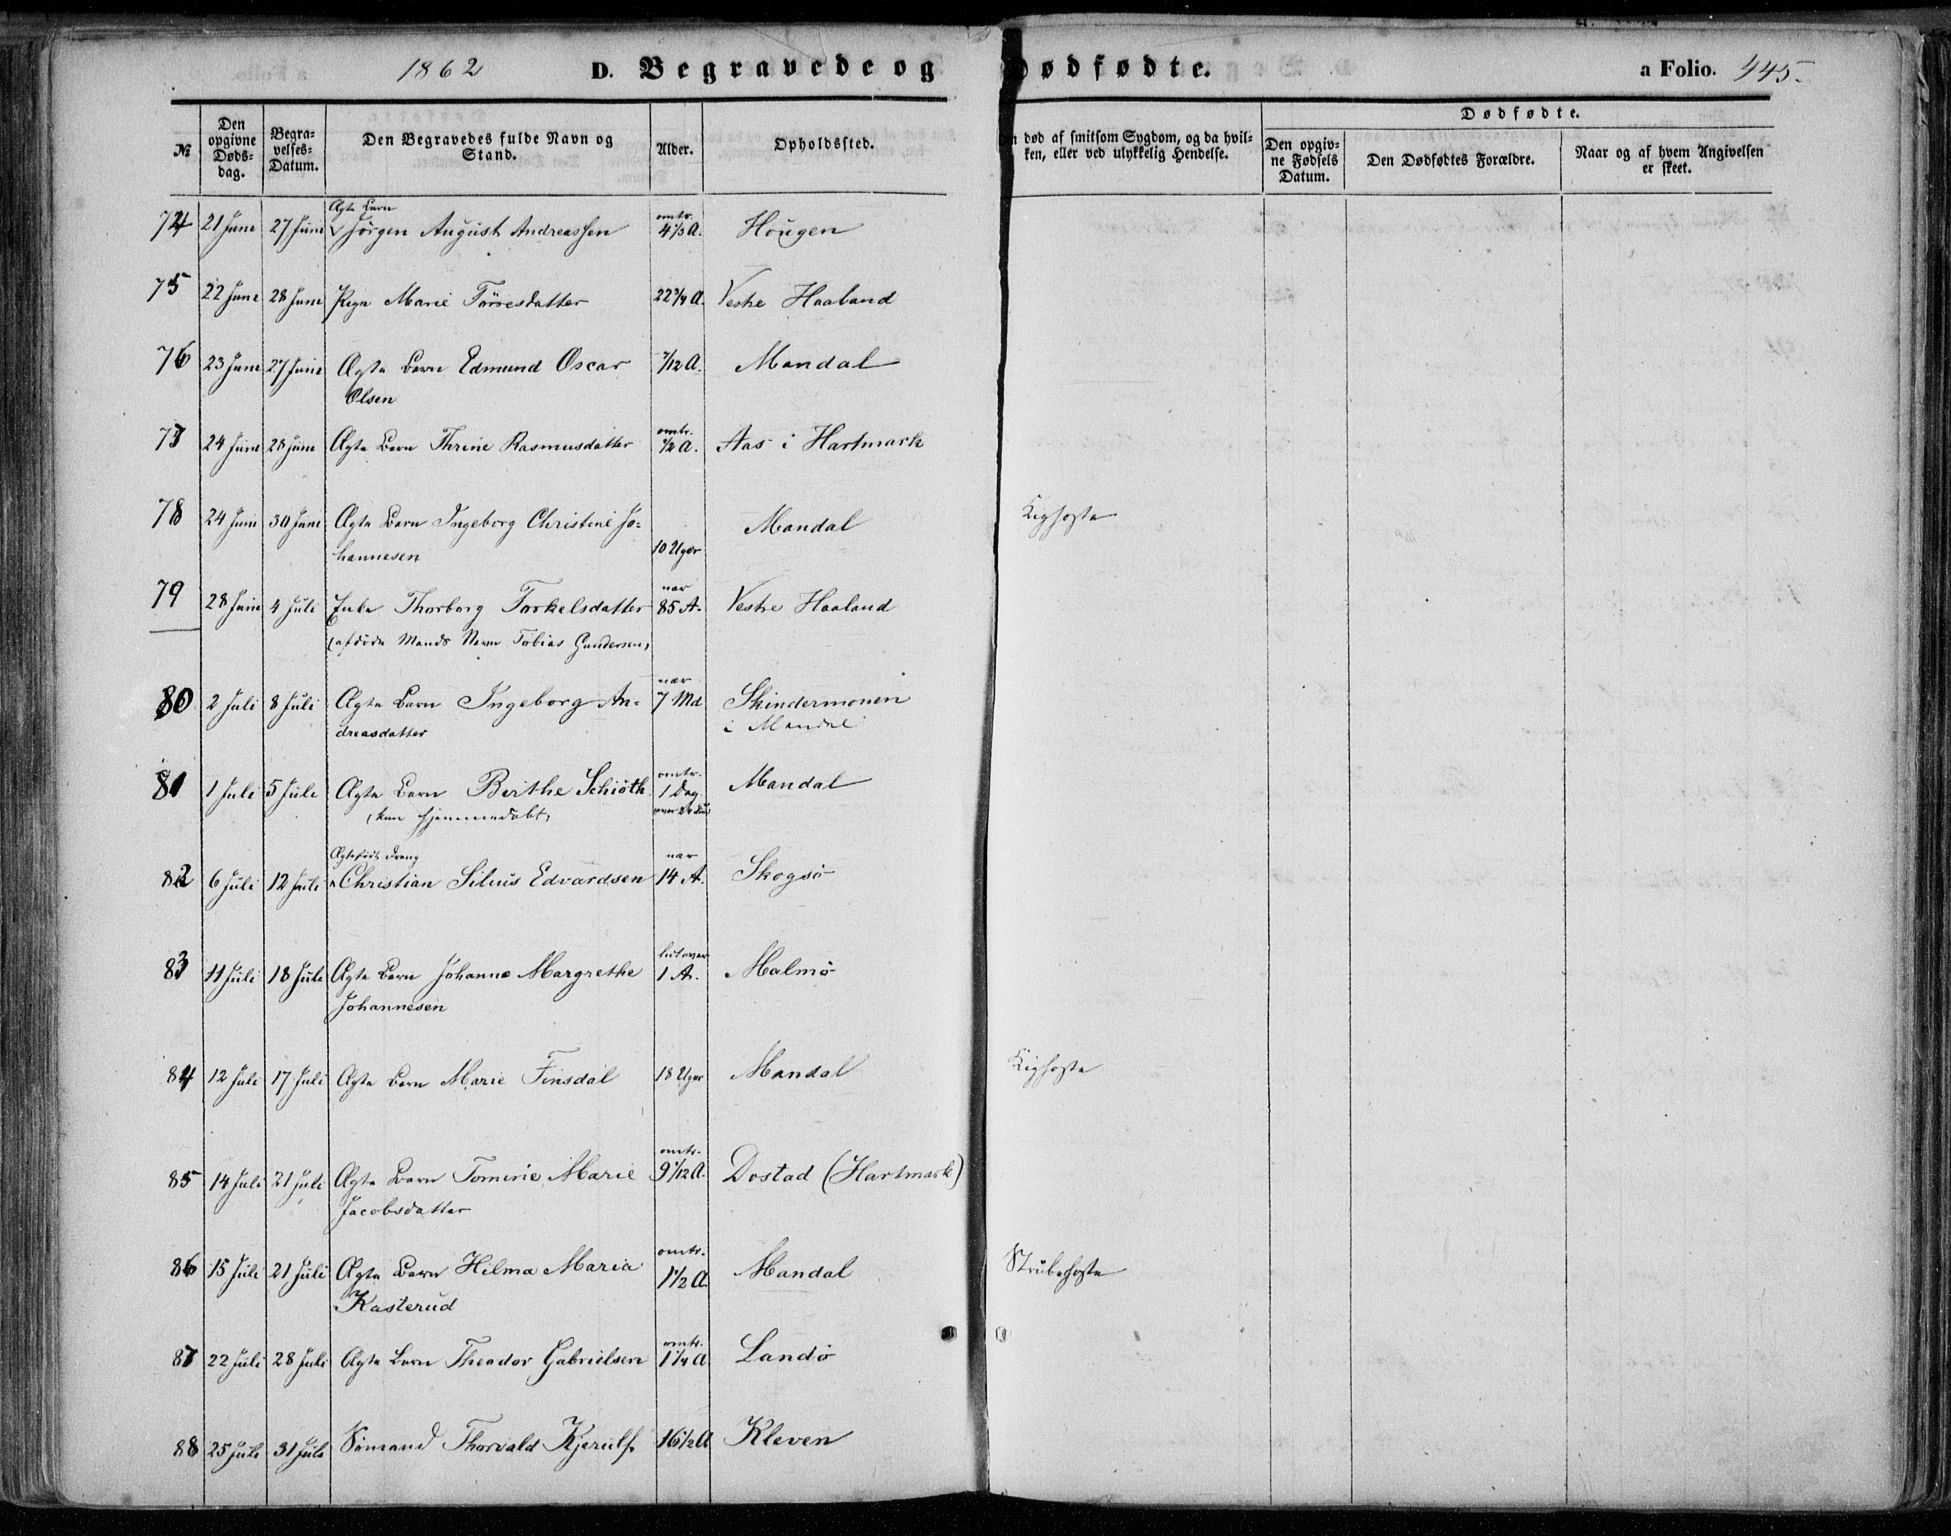 1862 D. Begravede og Dødfødte. a Folio. 445.
№
Den opgivne Døds-dag.
Begra-velses-Datum.
Den Begravedes fulde Navn og Stand.
Alder.
Opholdssted.
død af smitsom Sygdom, og da hvil-ken, eller ved ulykkelig Hendelse.
Dødfødte.
Den opgiv-ne Fødsels Datum.
Den Dødfødtes Forældre.
Naar og af hvem Angivelsen er skeet.
Ægte Barn omtr.
74 21 Juni 27 Juni Jørgen August Andreassen 4 1/3 A. Hougen
75 22 Juni 28 Juni Pige Marie Tørresdatter 22 3/4 A. Vestre Haaland
76 23 Juni 27 Juni Ægte Barn Edmund Oscar 7/12 A. Mandal
Olsen
omtr.
77 24 Juni 28 Juni Ægte Barn Thrine Rasmusdatter 1/2 A. Aas i Hartmark
78 24 Juni 30 Juni Ægte Barn Ingeborg Christine Jo- Mandal Kighoste
hannesen 10 Uger
nær
79 28 Juni 4 Juli Enke Thorborg Torkelsdatter 85 A. Vestre Haaland
(afdøde Mands Navn Tobias Gundersen)
nær
80 2 Juli 8 Juli Ægte Barn Ingeborg An- 7 Md Skindermonen
dreasdatter i Mandal
omtr.
81 1 Juli 5 Juli Ægte Barn Berthe Schiøth 1 Dag Mandal
(kun hjemmedøbt)
Ægtefødt Dreng nær
82 6 Juli 12 Juli Christian Silius Edvardsen 14 A. Skogsø
lidt over
83 11 Juli 18 Juli Ægte Barn Johanne Margrethe 1 A. Malmø
Johannesen
84 12 Juli 17 Juli Ægte Barn Marie Finsdal 18 Uger Mandal Kighoste
omtr.
85 14 Juli 21 Juli Ægte Barn Tomine Marie 9 1/12 A. Dostad (Hartmark)
Jacobsdatter
omtr.
86 15 Juli 21 Juli Ægte Barn Hilma Maria 1 1/2 A. Mandal Strubehoste
Kasterud
omtr.
87 22 Juli 28 Juli Ægte Barn Theodor Gabrielsen 1 1/4 A Landø
88 25 Juli 31 Juli Sømand Thorvald Kjerulf 16 1/2 A Kleven